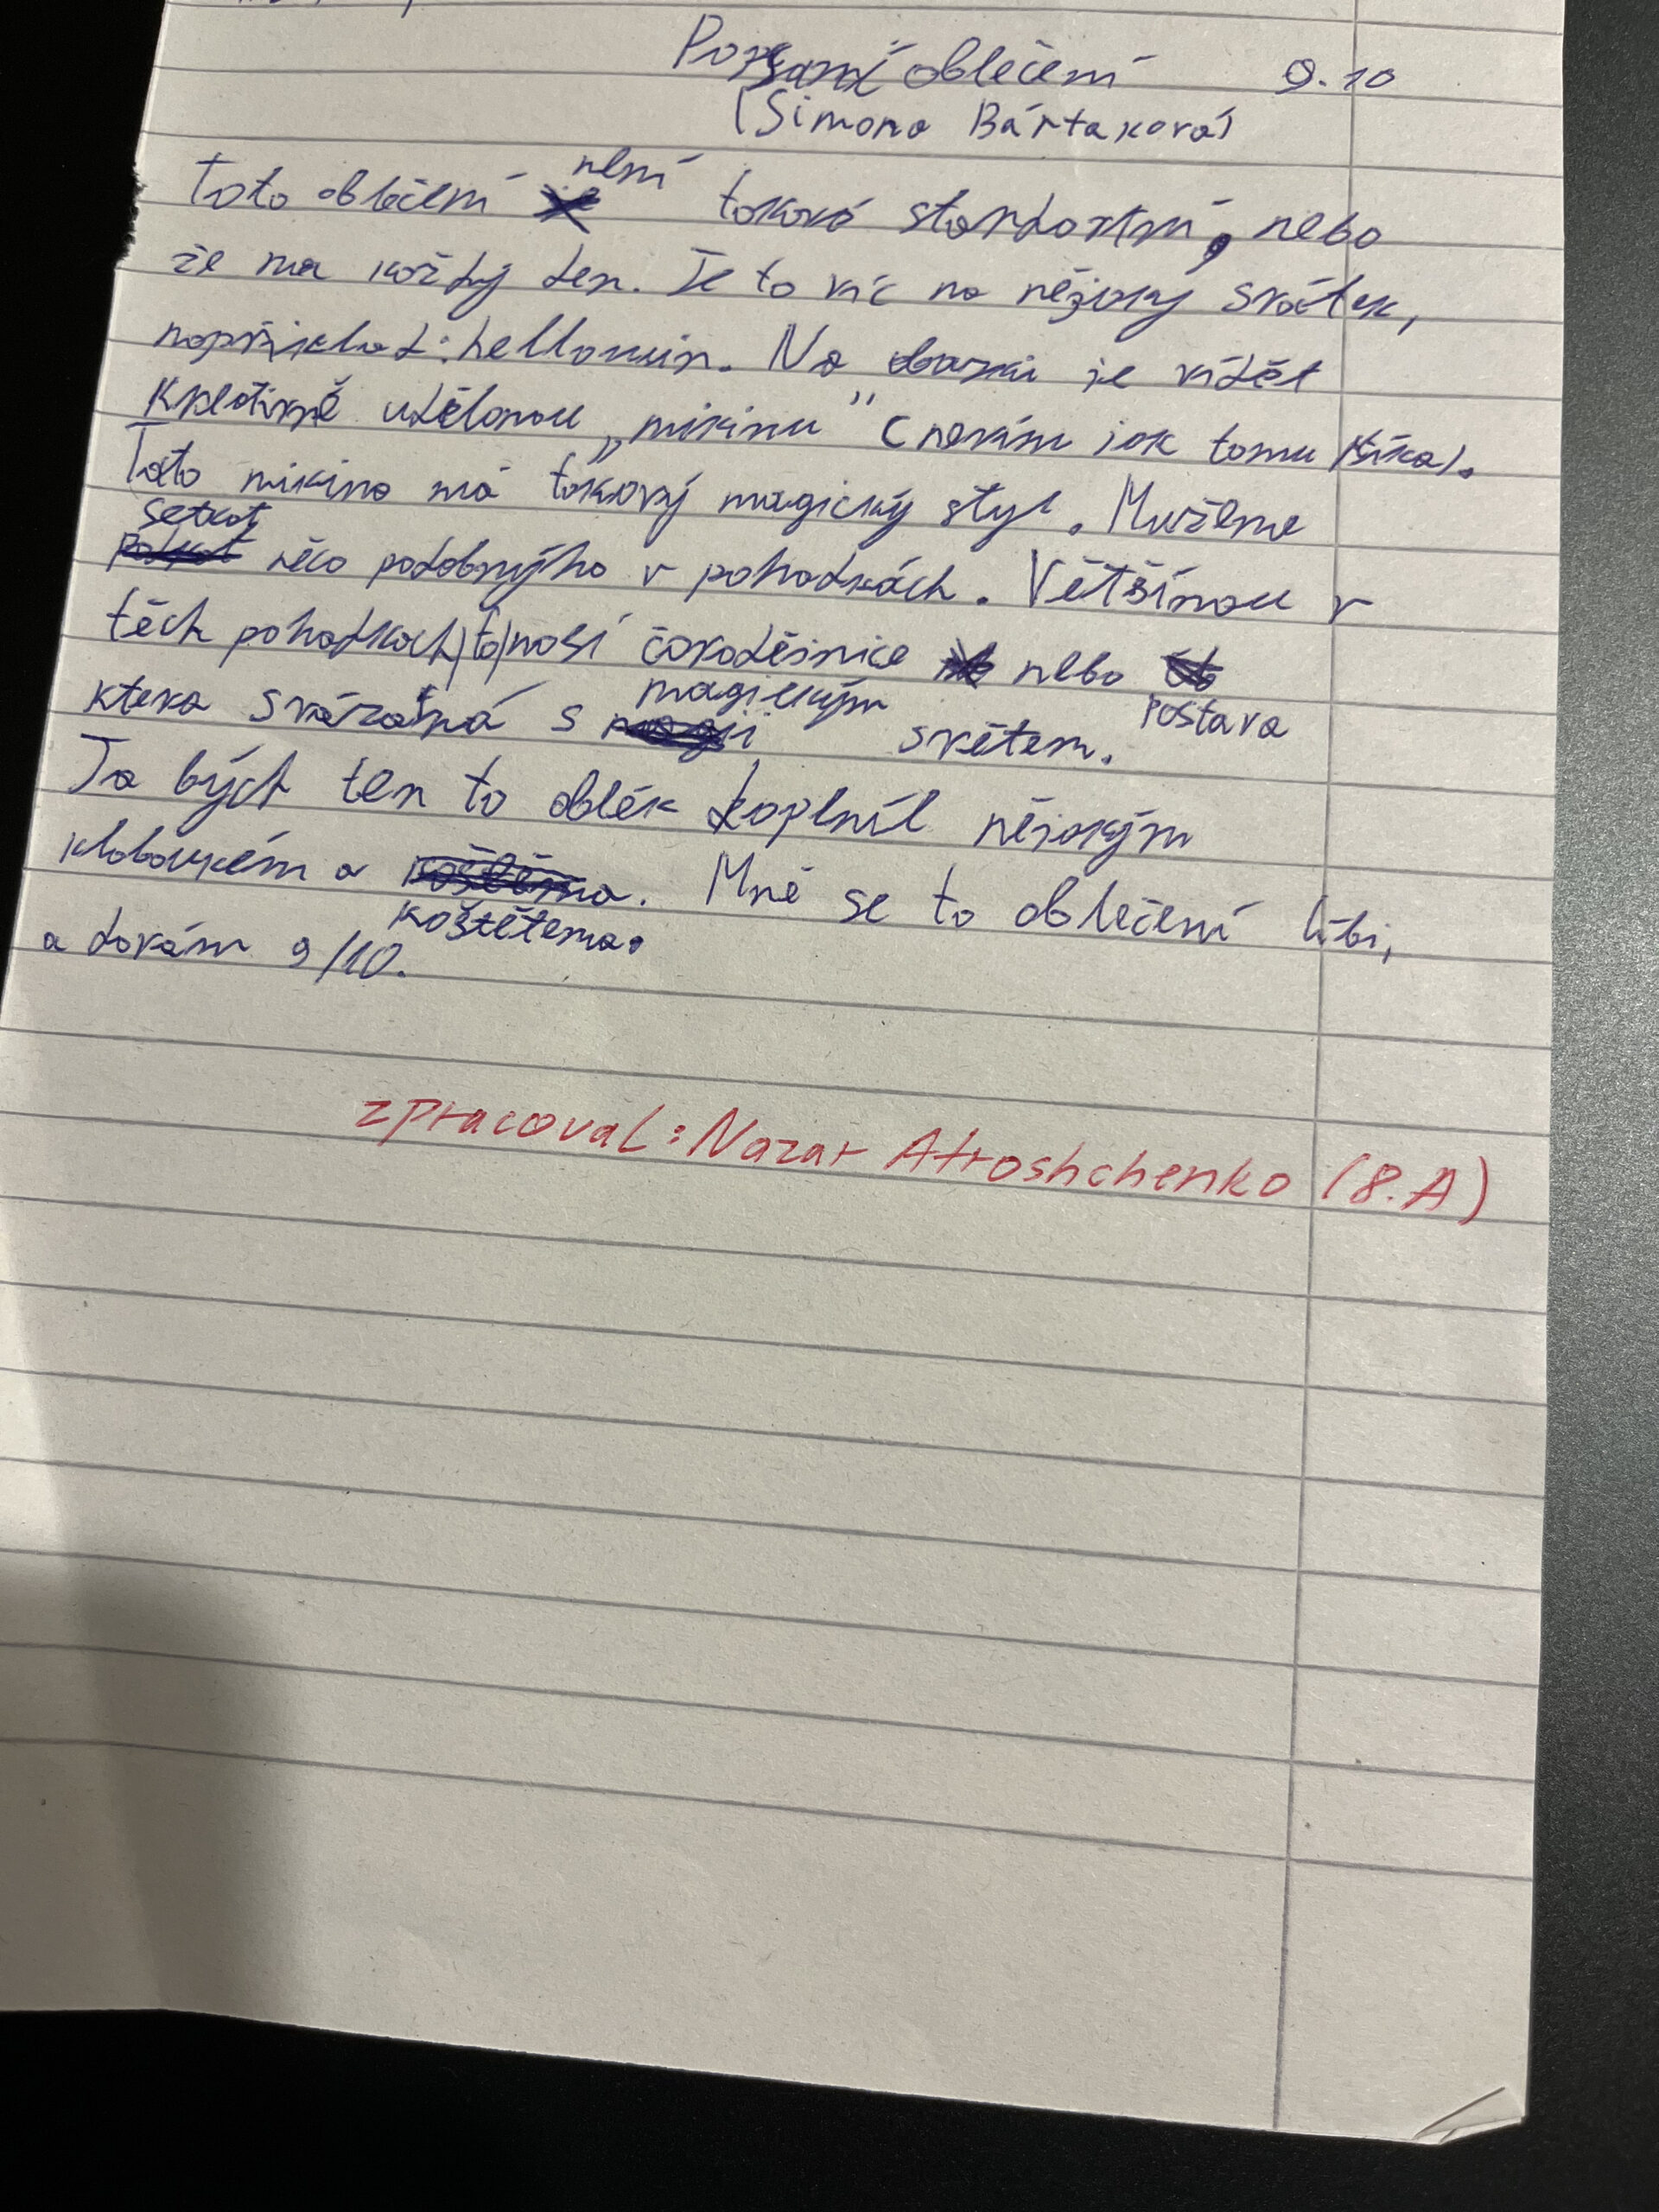 Popsaní oblečení 9.10
(Simona Bártaková)
Toto oblečení není taková standartní, nebo
že na každý den. Je to víc na nějaký svátek,
například: hellowin. Na obarzki je vidět
Kreativně udělanou „mikinu" (nevím jak tomu říka).
Tato mikina má takový magický styl. Mužeme
setkat něco podobnýho v pohadkách. Většínou v
těch pohadkach to nosí čarodějnice nebo postava
ktera svázaná s magickým světem.
Ja bých ten to oblék doplníl nějakým
kloboukém a koštětema.
Mně se to oblečení líbi,
a davám 9/10.
zpracoval: Nazar Atroshchenko (8.A)